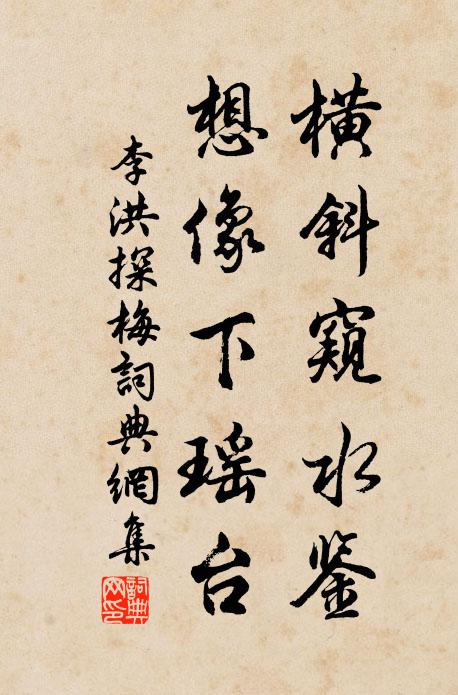 橫斜窺水鉴
想像下瑶台
李洪探梅詞典網集
詞典网印